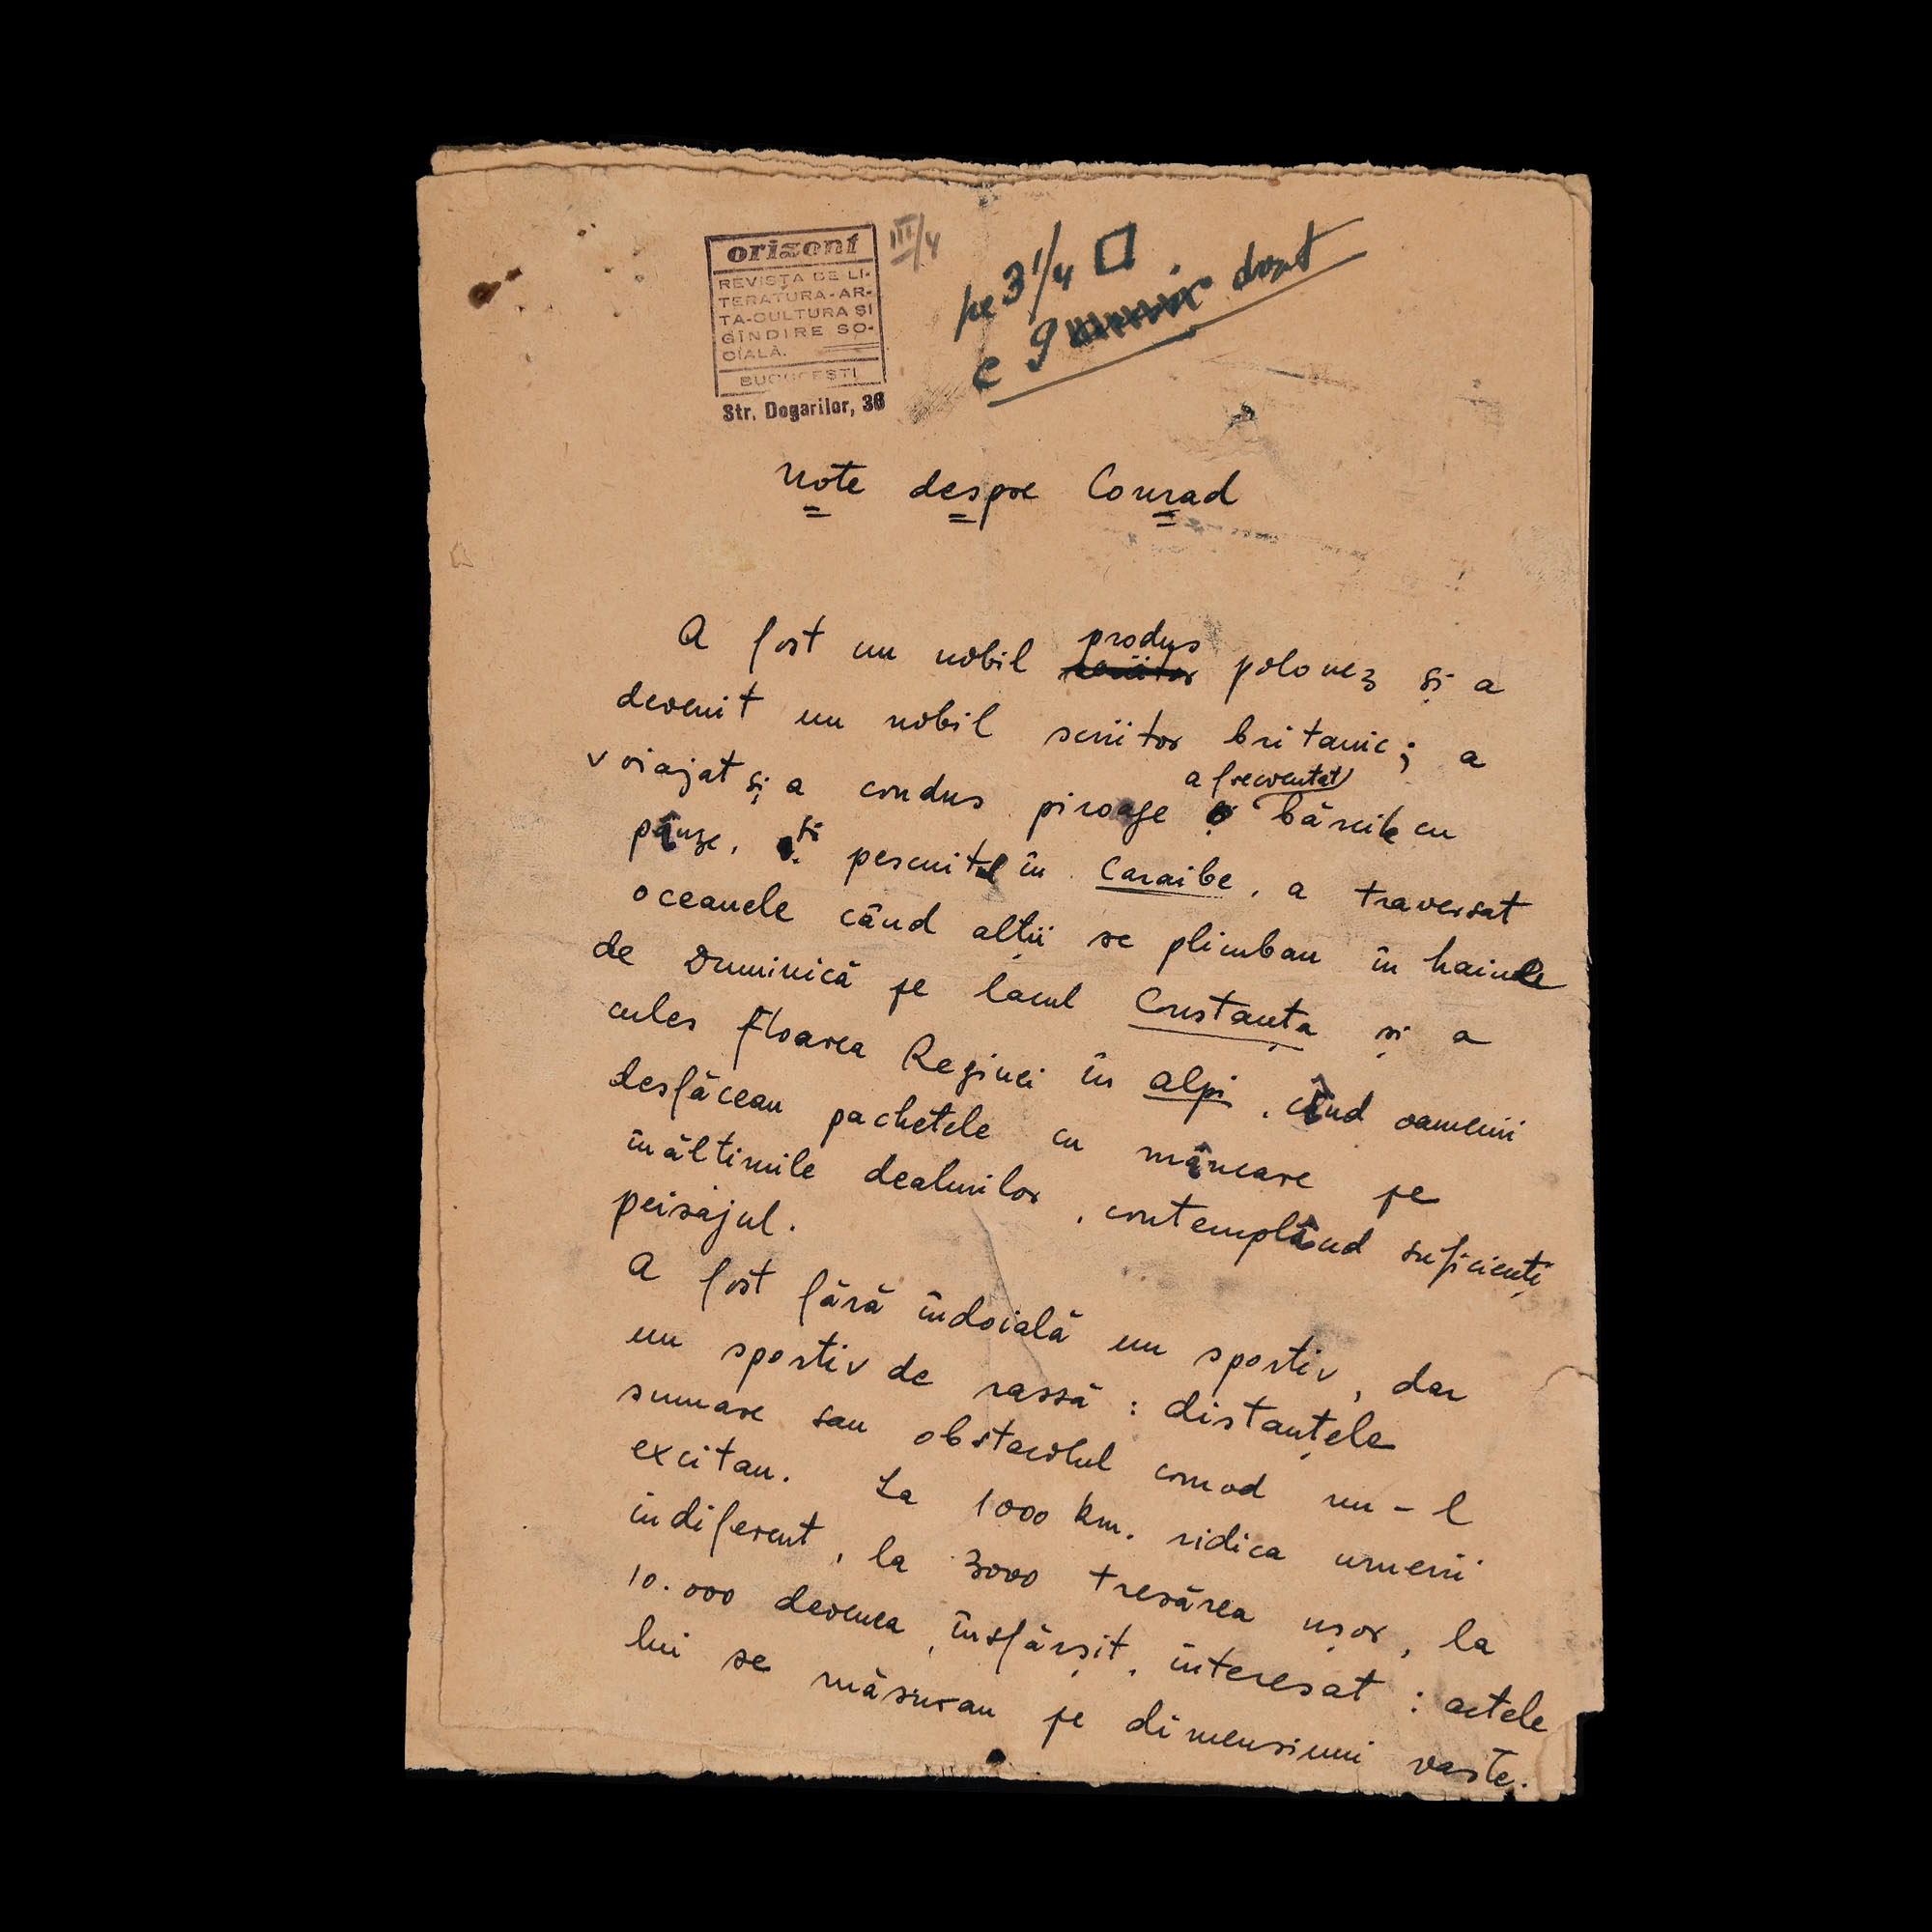 orizont
REVISTA DE LI-
TERATURA-AR-
TA-CULTURA ȘI
GÎNDIRE SO-
CIALĂ.
BUCUREȘTI
Str. Dogarilor, 36
III/4
pe 3 1/4 □
c 9 drept
Note despre Conrad
A fost un nobil produs polonez și a
devenit un nobil scriitor britanic; a
voiajat și a condus piroage a frecventat bărcile cu
pânze, și pescuitul în Caraibe, a traversat
oceanele când alții se plimbau în hainele
de Duminică pe lacul Constanța și a
cules Floarea Reginei în alpi, când oamenii
desfăceau pachetele cu mâncare pe
înăltimile dealurilor, contemplând suficienți
peisajul.
A fost fără îndoială un sportiv, dar
un sportiv de rassă: distanțele
sumare sau obstacolul comod nu-l
excitau. La 1000 km. ridica umerii
indiferent, la 3000 tresărea ușor, la
10.000 devenea, însfârșit, interesat: actele
lui se măsurau pe dimensiuni vaste.